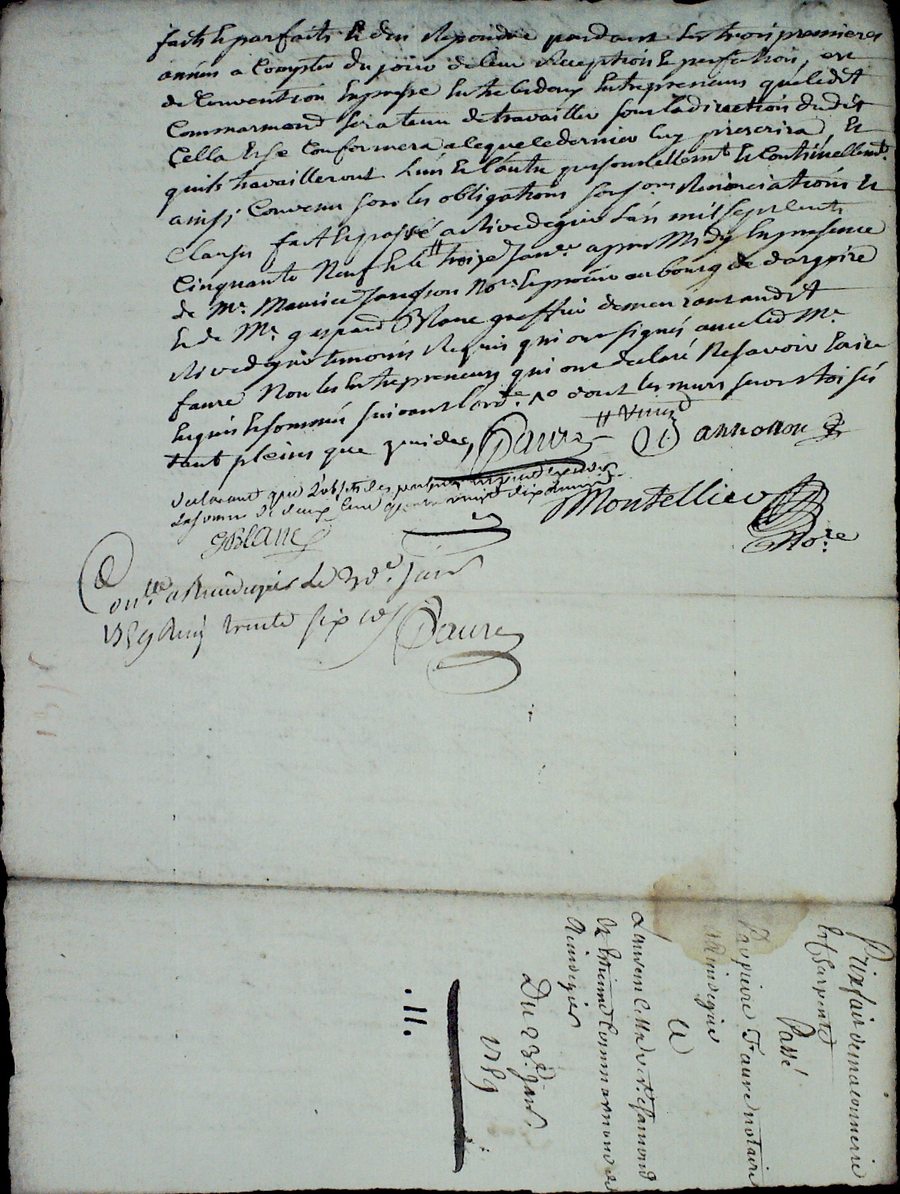 faits et parfaits et den Repondre pendant les trois premieres
années a Compter du jour de leur Reception et perfection, est
de Convention Expresse Entre lesd. Entrepreneurs que ledit
Commarmond sera tenu de travailler sous la direction dudit
Cella et se Conformera a ce que ce dernier luy prescrira, Et
quils travailleront Lun et Lautre personnellemt et Continuellemt
ainsi Convenu sous les obligations Renonciations et
Clauses fait et passé a Rivedegier Lan mil sept cents
Cinquante Neuf et le treize Janv. apres Midy En presence
de Mr. Maurice Jamson Nore. Et du bourg de dargoire
et de Mr. gaspard Blanc greffier demeurant audit
Rivedegier temoins Requis qui ont signés avec led. Mr.
faure Non les Entrepreneurs qui ont declaré Ne savoir Ecrire
Enquis et sommés suivant lord.e dont les murs seront toisés
tant pleins que vuides
Faure
declarant que
la somme de deux cent
Montellier
Nore
GBlanc
Con.lle a Rivedegier le 23e Janv
1759 Reçu trente six
Faure
Prixfait de maconnerie
et Charpente
Passé
Par pierre Faure notaire
a Rivedegier
a
de St. Chamond
et Etienne Commarmond de
Rivedegier
Du 23e Janv.
1759
.11.